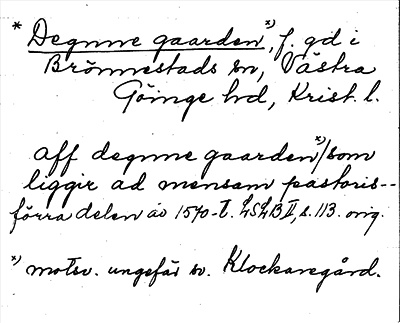 * Degnne gaarden *), f. gd i
Brönnestads sn, Västra
Göinge hd, Krist. l.
aff degnne gaarden *) /som
liggir ad mensam pastoris--
förra delen av 1570-t. LSLB II, s. 113. orig.
*) motsv. ungefär sv. Klockaregård.